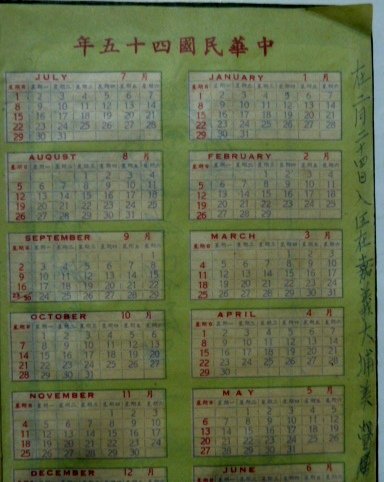 中華民國四十五年
JANUARY 1月
星期日 星期一 星期二 星期三 星期四 星期五 星期六
1 2 3 4 5 6 7
8 9 10 11 12 13 14
15 16 17 18 19 20 21
22 23 24 25 26 27 28
29 30 31
FEBRUARY 2月
星期日 星期一 星期二 星期三 星期四 星期五 星期六
1 2 3 4
5 6 7 8 9 10 11
12 13 14 15 16 17 18
19 20 21 22 23 24 25
26 27 28 29
MARCH 3月
星期日 星期一 星期二 星期三 星期四 星期五 星期六
1 2 3
4 5 6 7 8 9 10
11 12 13 14 15 16 17
18 19 20 21 22 23 24
25 26 27 28 29 30 31
APRIL 4月
星期日 星期一 星期二 星期三 星期四 星期五 星期六
1 2 3 4 5 6 7
8 9 10 11 12 13 14
15 16 17 18 19 20 21
22 23 24 25 26 27 28
29 30
MAY 5月
星期日 星期一 星期二 星期三 星期四 星期五 星期六
1 2 3 4 5
6 7 8 9 10 11 12
13 14 15 16 17 18 19
20 21 22 23 24 25 26
27 28 29 30 31
JUNE 6月
JULY 7月
星期日 星期一 星期二 星期三 星期四 星期五 星期六
1 2 3 4 5 6 7
8 9 10 11 12 13 14
15 16 17 18 19 20 21
22 23 24 25 26 27 28
29 30 31
AUGUST 8月
星期日 星期一 星期二 星期三 星期四 星期五 星期六
1 2 3 4
5 6 7 8 9 10 11
12 13 14 15 16 17 18
19 20 21 22 23 24 25
26 27 28 29 30 31
SEPTEMBER 9月
星期日 星期一 星期二 星期三 星期四 星期五 星期六
1
2 3 4 5 6 7 8
9 10 11 12 13 14 15
16 17 18 19 20 21 22
23-30 24 25 26 27 28 29
OCTOBER 10月
星期日 星期一 星期二 星期三 星期四 星期五 星期六
1 2 3 4 5 6
7 8 9 10 11 12 13
14 15 16 17 18 19 20
21 22 23 24 25 26 27
28 29 30 31
NOVEMBER 11月
星期日 星期一 星期二 星期三 星期四 星期五 星期六
1 2 3
4 5 6 7 8 9 10
11 12 13 14 15 16 17
18 19 20 21 22 23 24
25 26 27 28 29 30
DECEMBER 12月
二十四日入伍在嘉義大埔美營